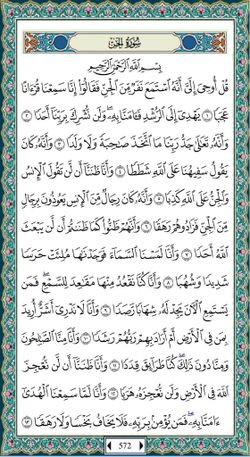 سُورَةُ الجِنِّ
بِسْمِ ٱللَّهِ ٱلرَّحْمَٰنِ ٱلرَّحِيمِ
قُلْ أُوحِىَ إِلَىَّ أَنَّهُ ٱسْتَمَعَ نَفَرٌ مِّنَ ٱلْجِنِّ فَقَالُوٓا۟ إِنَّا سَمِعْنَا قُرْءَانًا
عَجَبًا ١ يَهْدِىٓ إِلَى ٱلرُّشْدِ فَـَٔامَنَّا بِهِۦ وَلَن نُّشْرِكَ بِرَبِّنَآ أَحَدًا ٢
وَأَنَّهُۥ تَعَٰلَىٰ جَدُّ رَبِّنَا مَا ٱتَّخَذَ صَٰحِبَةً وَلَا وَلَدًا ٣ وَأَنَّهُۥ كَانَ
يَقُولُ سَفِيهُنَا عَلَى ٱللَّهِ شَطَطًا ٤ وَأَنَّا ظَنَنَّآ أَن لَّن تَقُولَ ٱلْإِنسُ
وَٱلْجِنُّ عَلَى ٱللَّهِ كَذِبًا ٥ وَأَنَّهُۥ كَانَ رِجَالٌ مِّنَ ٱلْإِنسِ يَعُوذُونَ بِرِجَالٍ
مِّنَ ٱلْجِنِّ فَزَادُوهُمْ رَهَقًا ٦ وَأَنَّهُمْ ظَنُّوا۟ كَمَا ظَنَنتُمْ أَن لَّن يَبْعَثَ
ٱللَّهُ أَحَدًا ٧ وَأَنَّا لَمَسْنَا ٱلسَّمَآءَ فَوَجَدْنَٰهَا مُلِئَتْ حَرَسًا
شَدِيدًا وَشُهُبًا ٨ وَأَنَّا كُنَّا نَقْعُدُ مِنْهَا مَقَٰعِدَ لِلسَّمْعِ ۖ فَمَن
يَسْتَمِعِ ٱلْـَٔانَ يَجِدْ لَهُۥ شِهَابًا رَّصَدًا ٩ وَأَنَّا لَا نَدْرِىٓ أَشَرٌّ أُرِيدَ
بِمَن فِى ٱلْأَرْضِ أَمْ أَرَادَ بِهِمْ رَبُّهُمْ رَشَدًا ١٠ وَأَنَّا مِنَّا ٱلصَّٰلِحُونَ
وَمِنَّا دُونَ ذَٰلِكَ ۖ كُنَّا طَرَآئِقَ قِدَدًا ١١ وَأَنَّا ظَنَنَّآ أَن لَّن نُّعْجِزَ
ٱللَّهَ فِى ٱلْأَرْضِ وَلَن نُّعْجِزَهُۥ هَرَبًا ١٢ وَأَنَّا لَمَّا سَمِعْنَا ٱلْهُدَىٰٓ
ءَامَنَّا بِهِۦ ۖ فَمَن يُؤْمِنۢ بِرَبِّهِۦ فَلَا يَخَافُ بَخْسًا وَلَا رَهَقًا ١٣
572